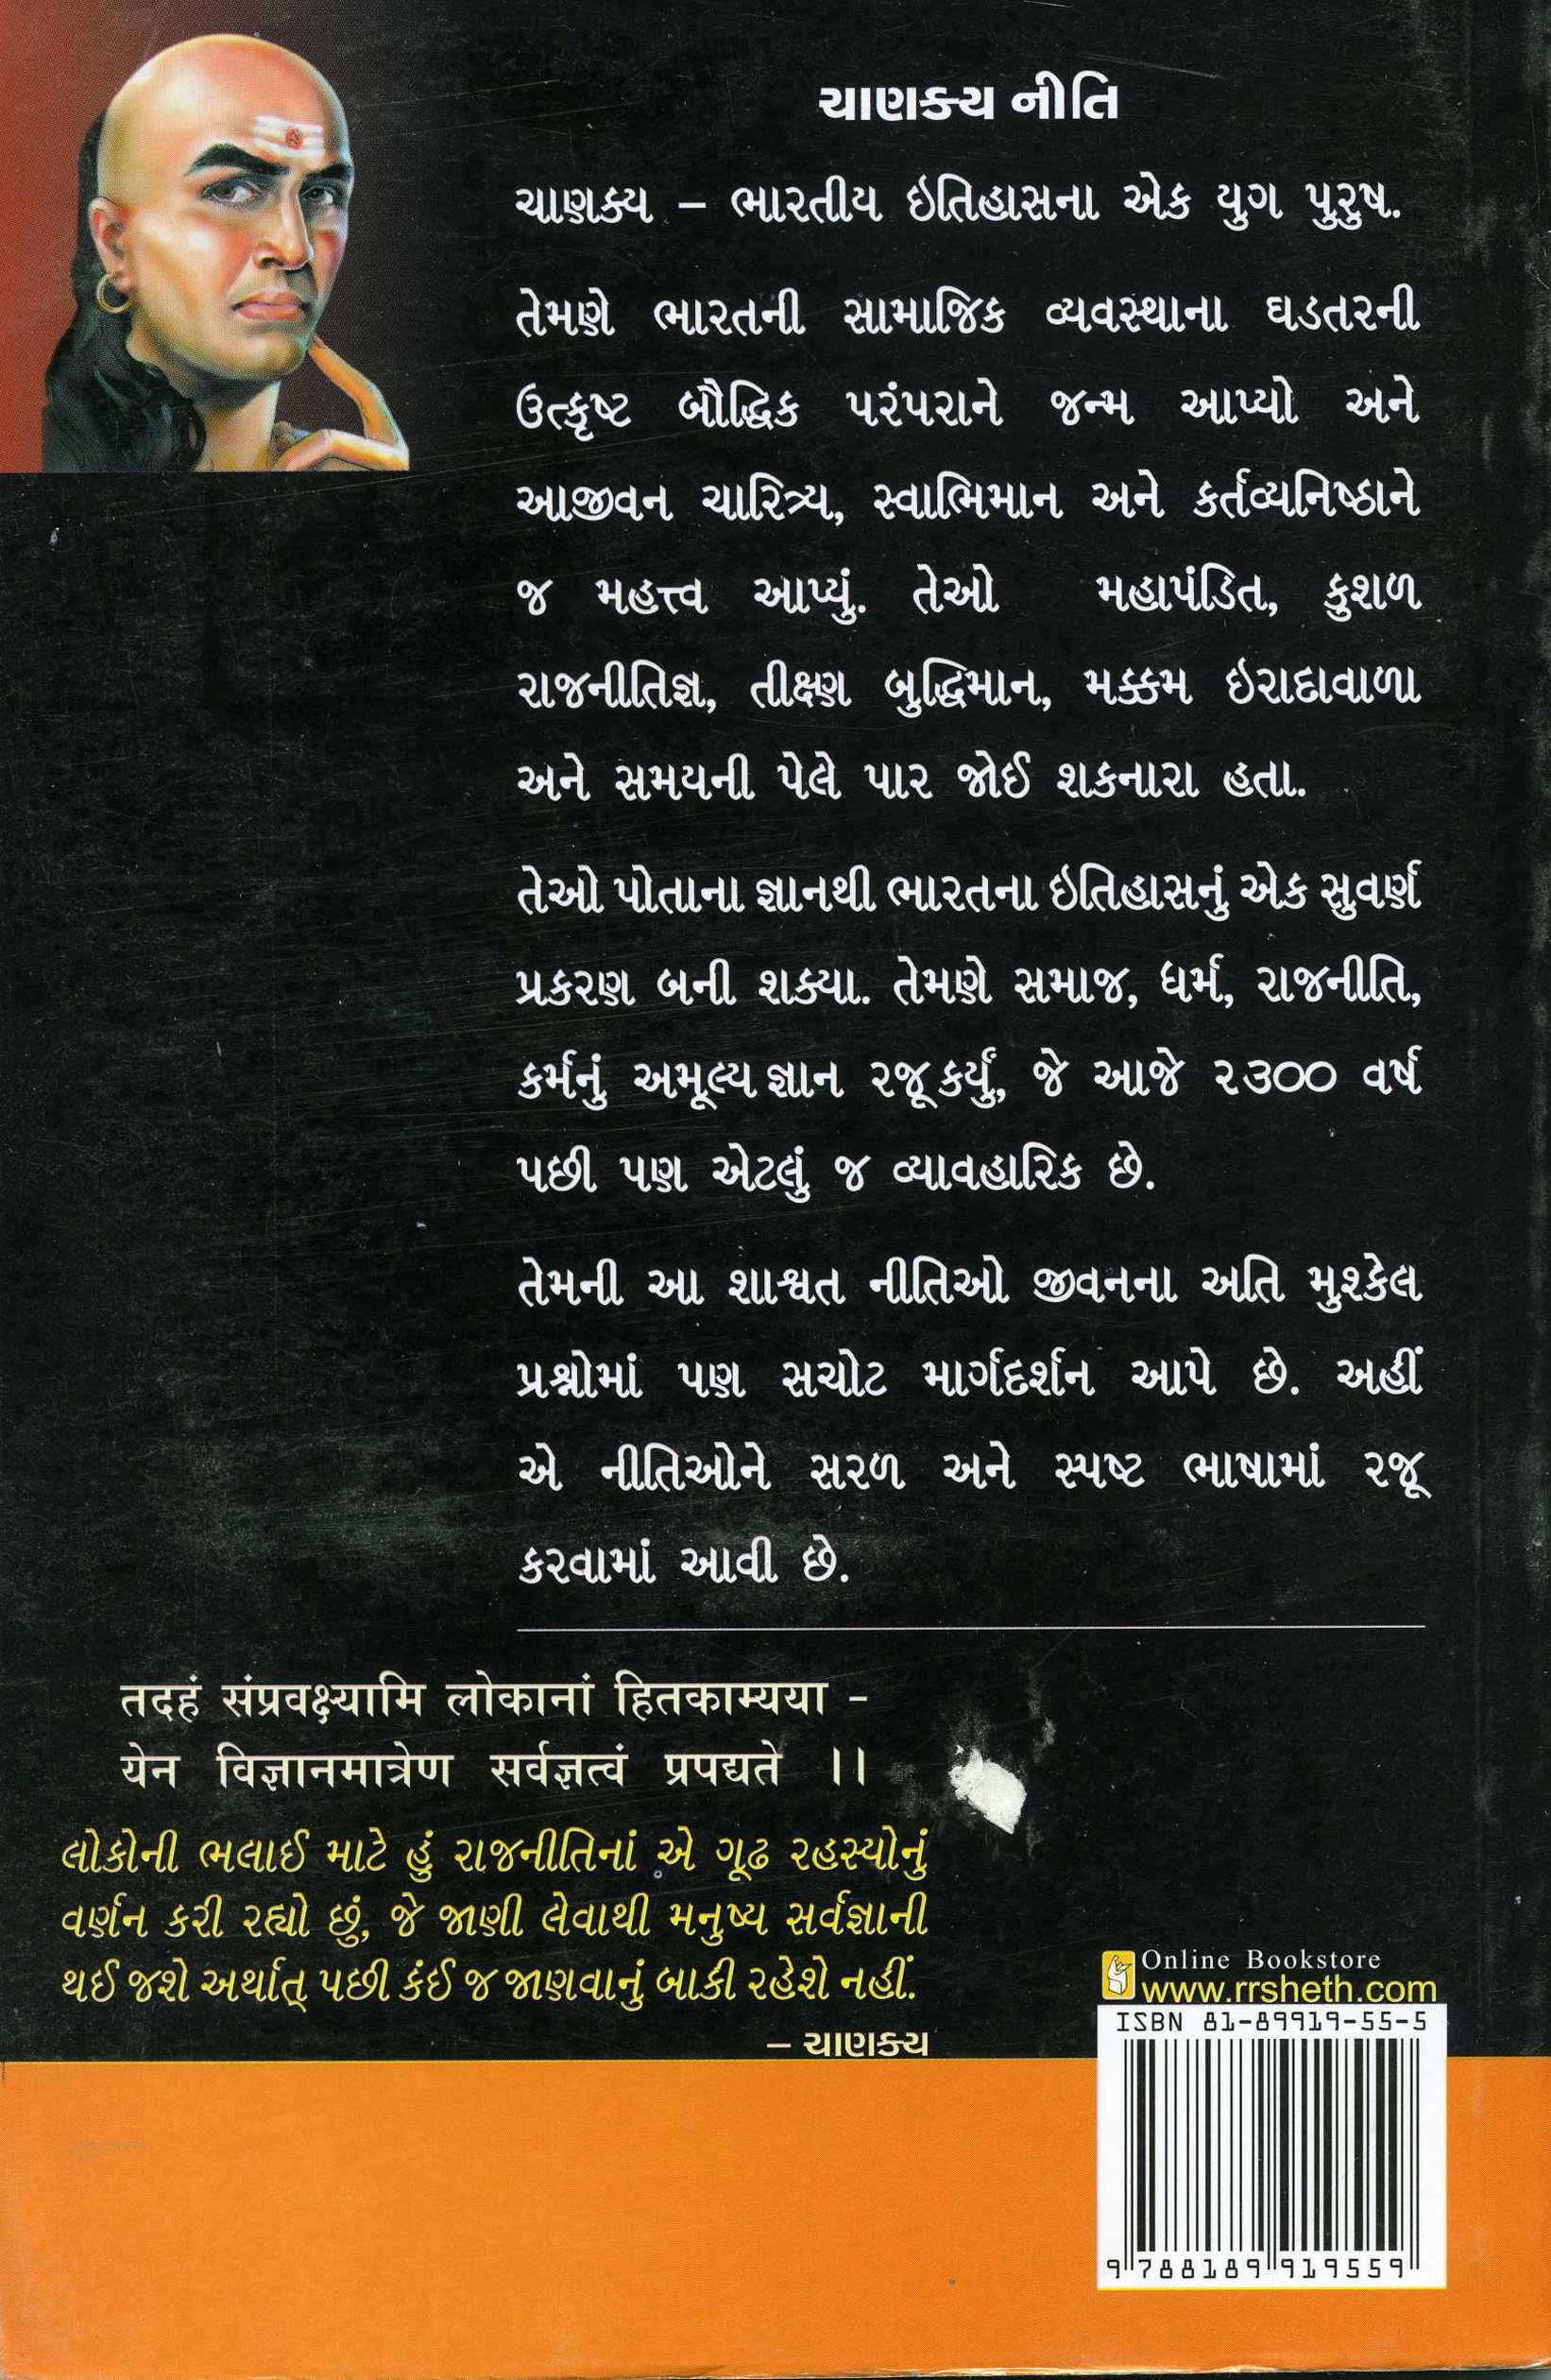 ચાણક્ય નીતિ
ચાણક્ય – ભારતીય ઇતિહાસના એક યુગ પુરુષ.
તેમણે ભારતની સામાજિક વ્યવસ્થાના ઘડતરની
ઉત્કૃષ્ટ બૌદ્ધિક પરંપરાને જન્મ આપ્યો અને
આજીવન ચારિત્ર્ય, સ્વાભિમાન અને કર્તવ્યનિષ્ઠાને
જ મહત્ત્વ આપ્યું. તેઓ મહાપંડિત, કુશળ
રાજનીતિજ્ઞ, તીક્ષ્ણ બુદ્ધિમાન, મક્કમ ઇરાદાવાળા
અને સમયની પેલે પાર જોઈ શકનારા હતા.
તેઓ પોતાના જ્ઞાનથી ભારતના ઇતિહાસનું એક સુવર્ણ
પ્રકરણ બની શક્યા. તેમણે સમાજ, ધર્મ, રાજનીતિ,
કર્મનું અમૂલ્ય જ્ઞાન રજૂ કર્યું, જે આજે ૨૩૦૦ વર્ષ
પછી પણ એટલું જ વ્યાવહારિક છે.
તેમની આ શાશ્વત નીતિઓ જીવનના અતિ મુશ્કેલ
પ્રશ્નોમાં પણ સચોટ માર્ગદર્શન આપે છે. અહીં
એ નીતિઓને સરળ અને સ્પષ્ટ ભાષામાં રજૂ
કરવામાં આવી છે.
तदहं संप्रवक्ष्यामि लोकानां हितकाम्यया –
येन विज्ञानमात्रेण सर्वज्ञत्वं प्रपद्यते ।।
લોકોની ભલાઈ માટે હું રાજનીતિનાં એ ગૂઢ રહસ્યોનું
વર્ણન કરી રહ્યો છું, જે જાણી લેવાથી મનુષ્ય સર્વજ્ઞાની
થઈ જશે અર્થાત્ પછી કંઈ જ જાણવાનું બાકી રહેશે નહીં.
– ચાણક્ય
Online Bookstore
www.rrsheth.com
ISBN 81-89919-55-5
9 788189 919559